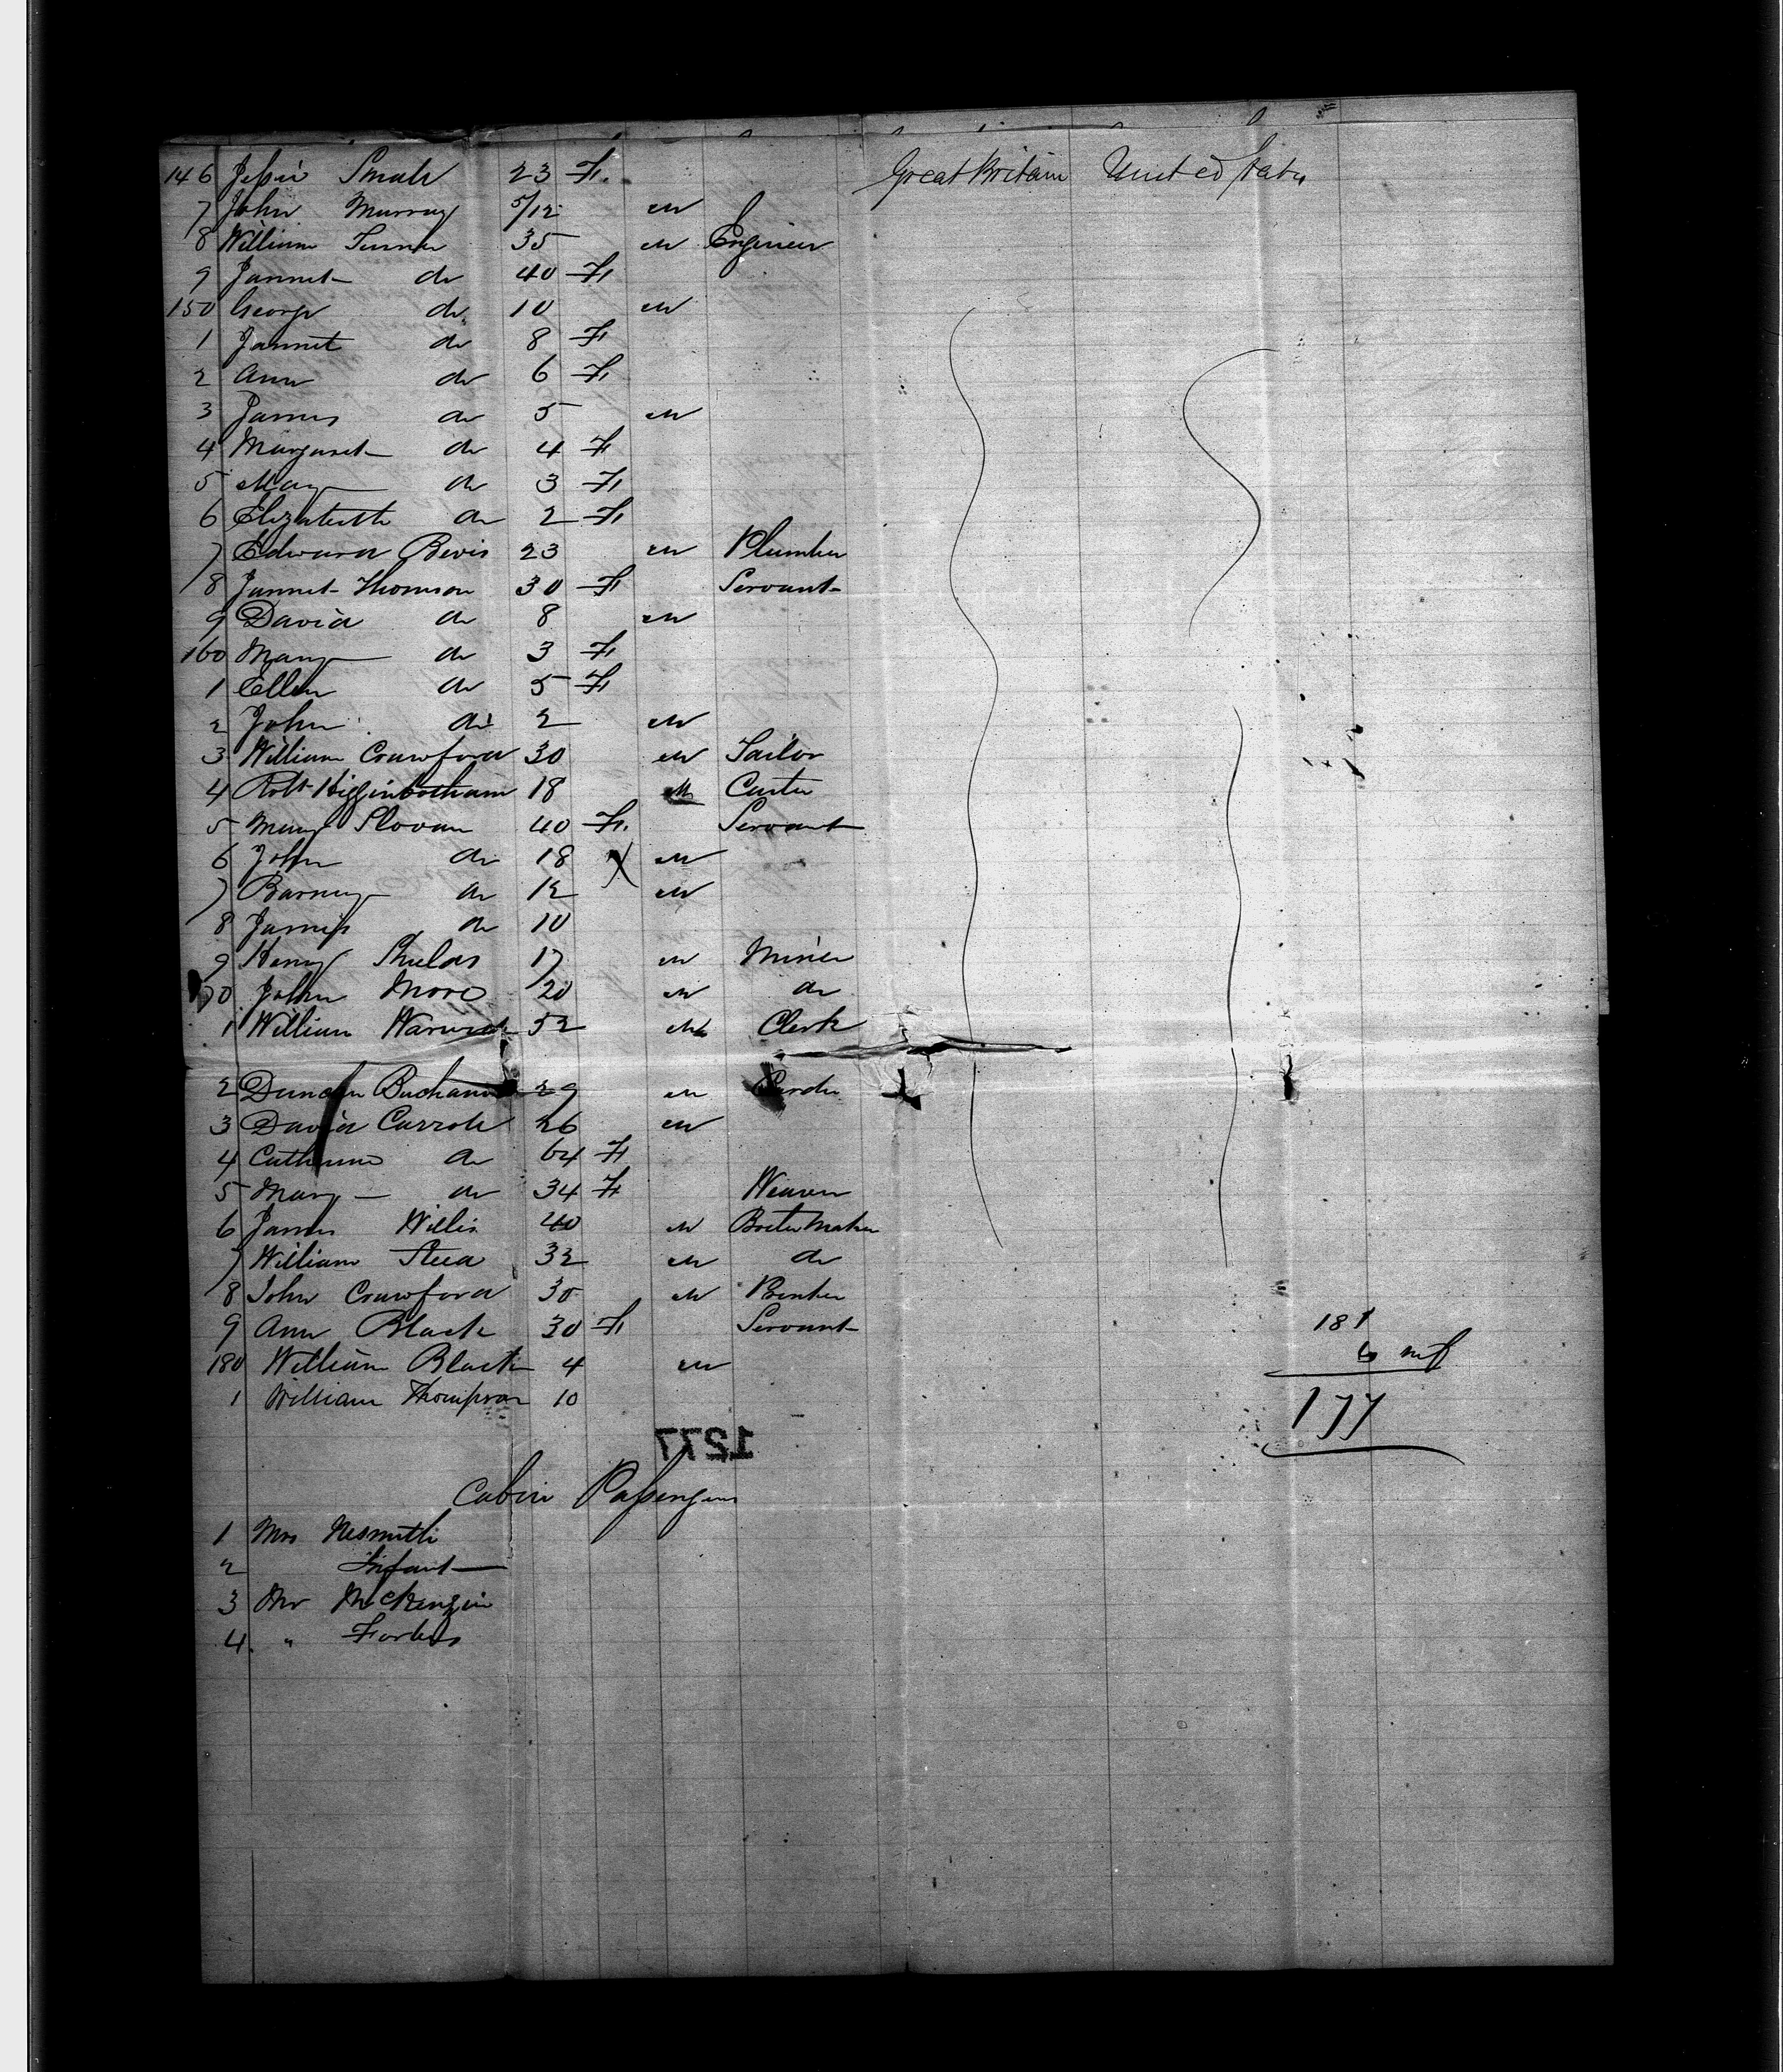 146 Jessie Smale 23 F. Great Britain United States
7 John Murray 5/12 M
8 William Turner 35 M Engineer
9 Jannet do 40 F
150 George do 10 M
1 Jannet do 8 F
2 Ann do 6 F
3 James do 5 M
4 Margaret do 4 F
5 Mary do 3 F
6 Elizabeth do 2 F
7 Edward Bevis 23 M Plumber
8 Jannet Thomson 30 F Servant
9 David do 8 M
160 Mary do 3 F
1 Ellen do 5 F
2 John do 2 M
3 William Crawford 30 M Sailor
4 Robt Higginbotham 18 M Carter
5 Mary Slovan 40 F. Servant
6 John do 18 X M
7 Barney do 12 M
8 do 10
9 Henry Shields 17 M Miner
70 John More 20 M do
1 William Warwick 52 M Clerk
2 Duncan Buchanan 29 M
3 David Carrole 26 M
4 Catherine do 64 F
5 Mary do 34 F Weaver
6 James Willis 40 M Boiler Maker
7 William Steed 32 M do
8 John Crawford 30 M
9 Ann Black 30 F Servant
181
180 William Black 4 M
6
1 William Thompson 10
177
1277
Cabin Passengers
1 Mrs Nesmith
2 Infant
3 Mr McKenzie
4. " Forbes